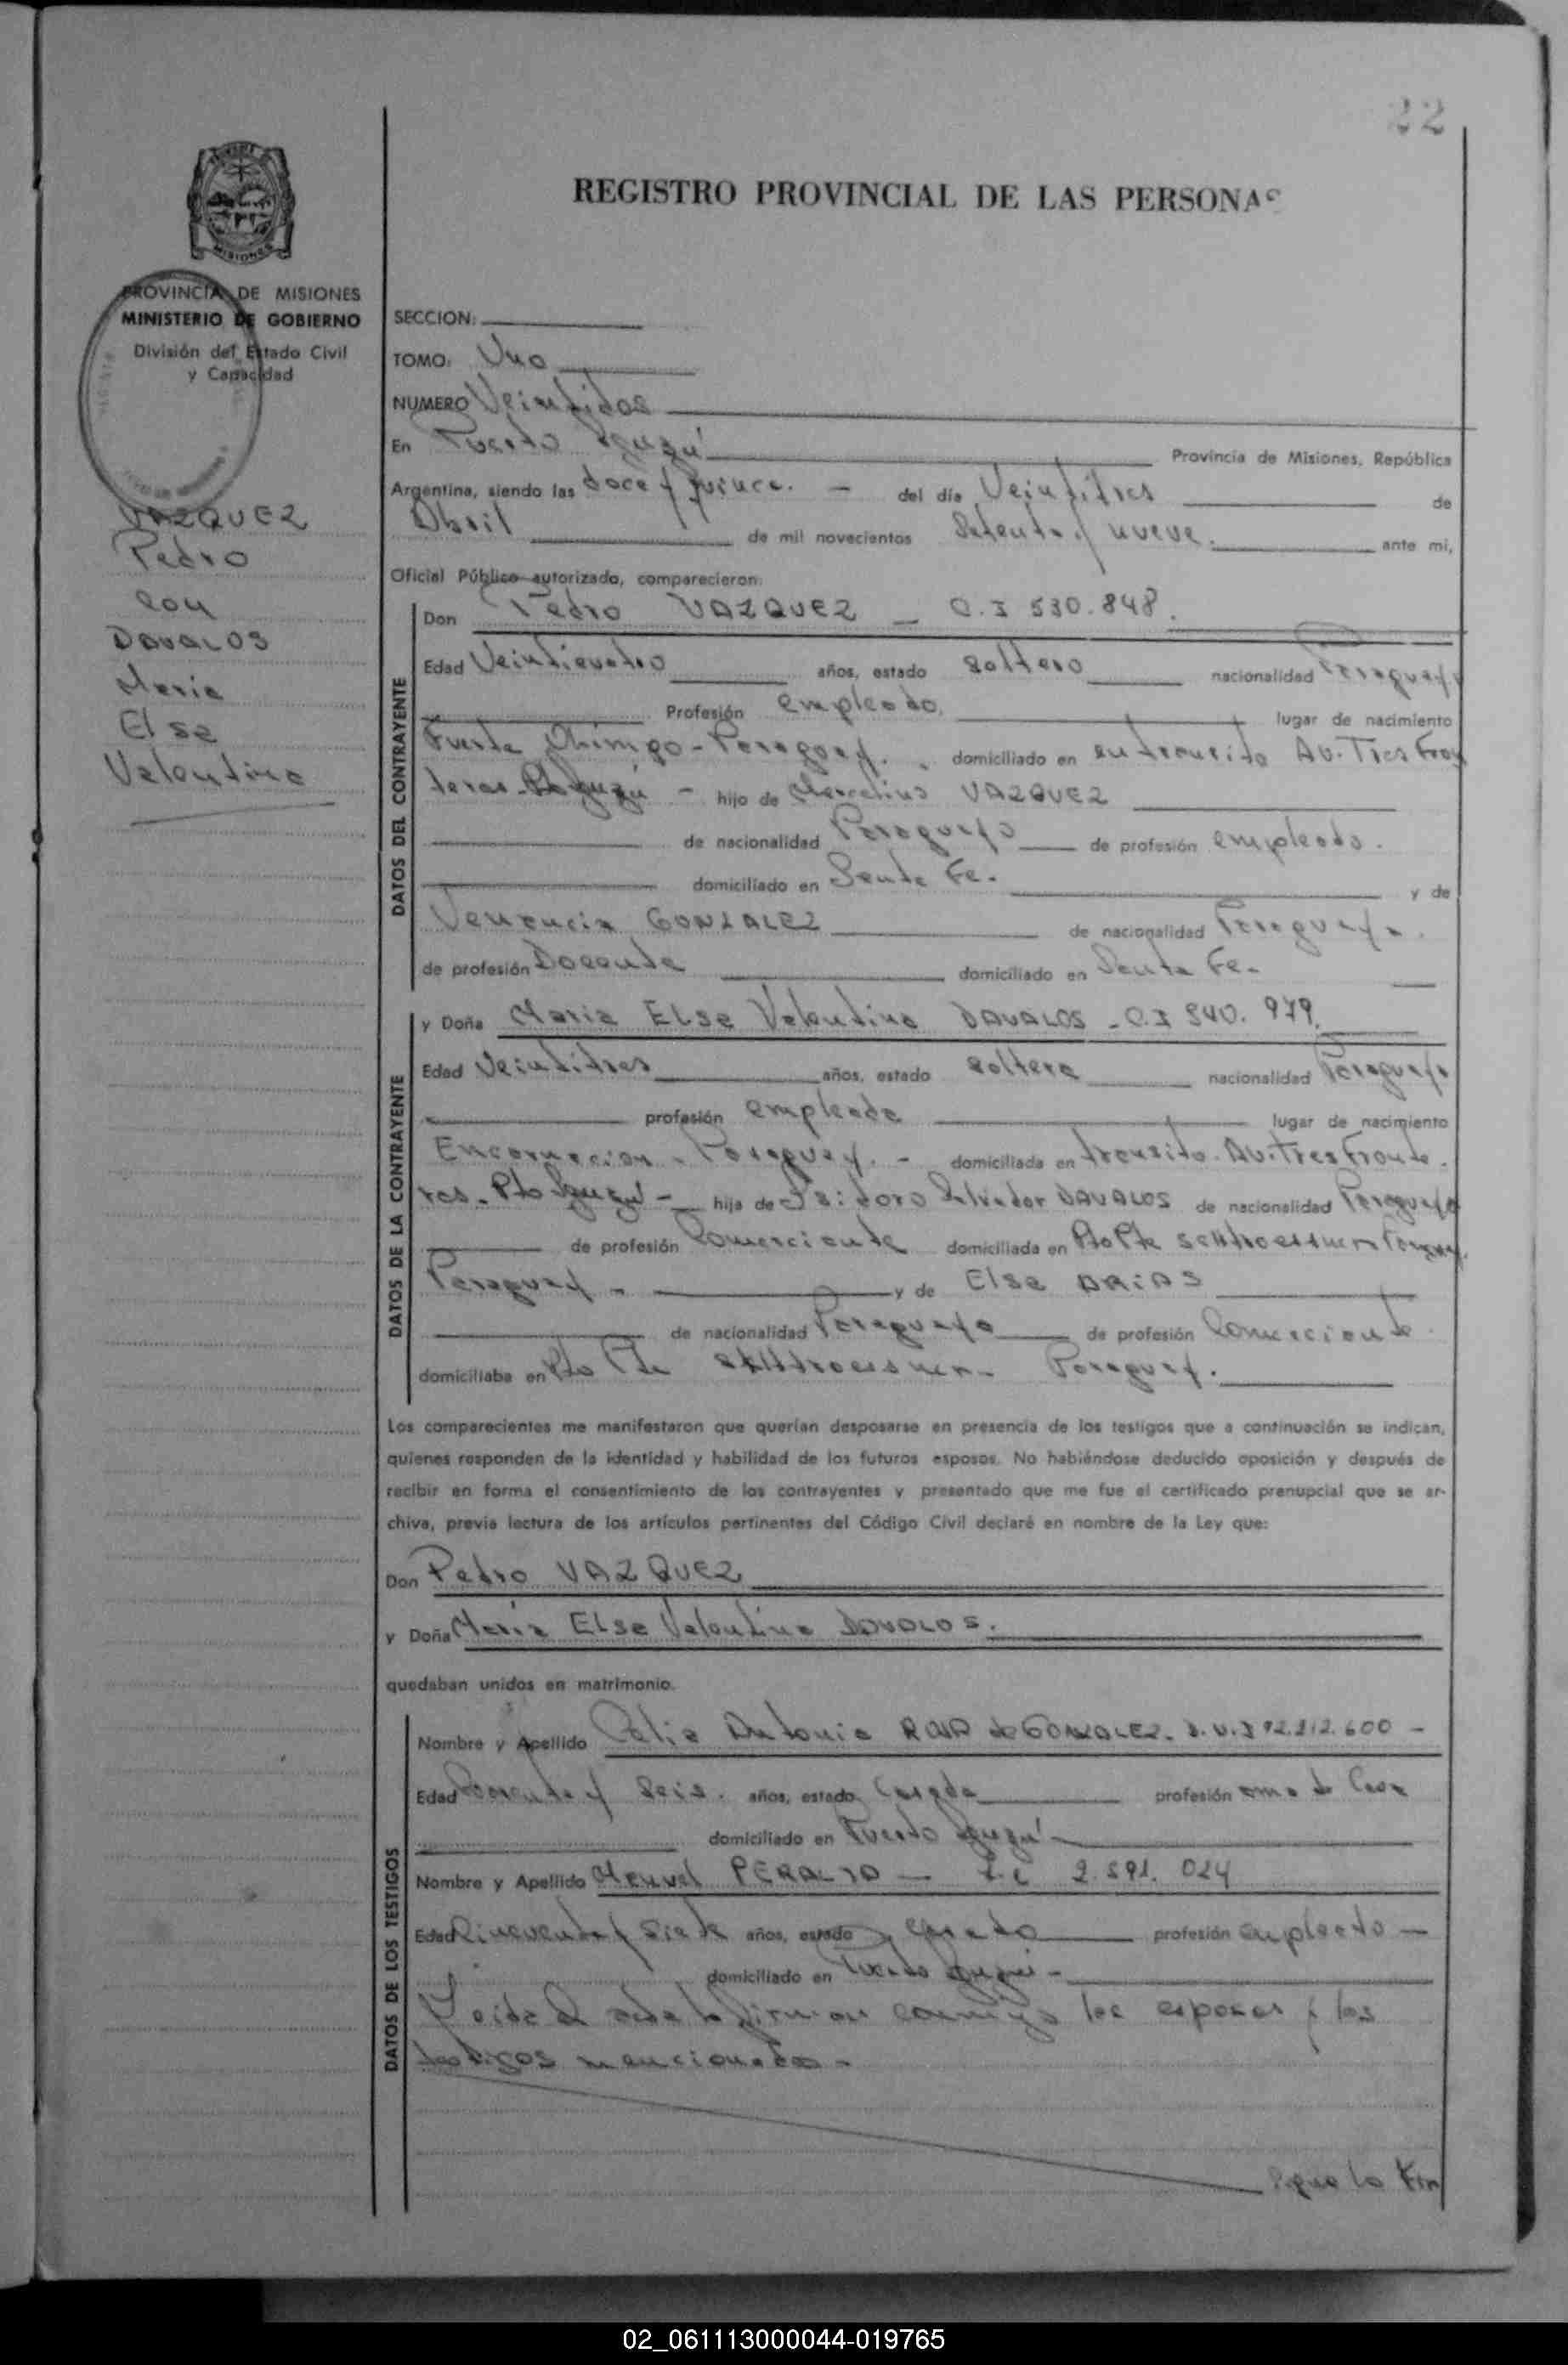 22
REGISTRO PROVINCIAL DE LAS PERSONAS
MISIONES
PROVINCIA DE MISIONES
MINISTERIO DE GOBIERNO
División del Estado Civil
y Capacidad
VAZQUEZ
Pedro
con
DAVALOS
Maria
Elsa
Valentina
SECCION:
TOMO: Uno
NUMERO Veintidos
En Puerto Iguazú Provincia de Misiones, República
Argentina, siendo las doce y quince. - del día Veintitres de
Abril de mil novecientos Setenta y nueve. ante mi,
Oficial Público autorizado, comparecieron:
DATOS DEL CONTRAYENTE
Don Pedro VAZQUEZ - C.I 530.848.
Edad Veinticuatro años, estado soltero nacionalidad Paraguayo
Profesión empleado, lugar de nacimiento
Fuerte Olimpo - Paraguay. domiciliado en en transito Av. Tres Fron
teras - Pto Iguazú - hijo de Marcelino VAZQUEZ
de nacionalidad Paraguayo de profesión empleado.
domiciliado en Santa Fe. y de
Venancia GONZALEZ de nacionalidad Paraguaya.
de profesión Docente domiciliado en Santa Fe-
DATOS DE LA CONTRAYENTE
y Doña Maria Elsa Valentina DAVALOS - C.I 540. 979.
Edad Veintitres años, estado soltera nacionalidad Paraguaya
profesión empleada lugar de nacimiento
Encarnacion - Paraguay. - domiciliada en transito. Av. Tres Fronte.
ras - Pto Iguazú - hija de Isidoro Salvador DAVALOS de nacionalidad Paraguayo
de profesión Comerciante domiciliada en Pto Pte
Paraguay - y de Elsa ARIAS
de nacionalidad Paraguaya de profesión Comerciante.
domiciliaba en Pto Pte Paraguay.
Los comparecientes me manifestaron que querían desposarse en presencia de los testigos que a continuación se indican,
quienes responden de la identidad y habilidad de los futuros esposos. No habiéndose deducido oposición y después de
recibir en forma el consentimiento de los contrayentes y presentado que me fue el certificado prenupcial que se ar-
chiva, previa lectura de los artículos pertinentes del Código Civil declaré en nombre de la Ley que:
Don Pedro VAZQUEZ
y Doña Maria Elsa Valentina DAVALOS.
quedaban unidos en matrimonio.
DATOS DE LOS TESTIGOS
Nombre y Apellido Antonia de GONZALEZ. D.N.I 12.212.600 -
Edad y seis. años, estado Casada profesión ama de Casa
domiciliado en Puerto Iguazú -
Nombre y Apellido Manuel PERALTA - L.E 2.591. 024
Edad Cincuenta y siete años, estado casado profesión empleado -
domiciliado en Puerto Iguazú -
Leida el acta la firman conmigo los esposos y los
testigos mencionados -
Sigue la Fir
02_061113000044-019765